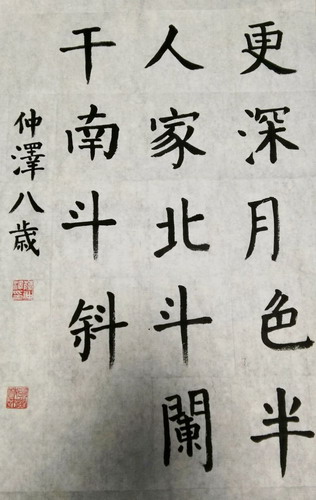 更深月色半
人家北斗闌
干南斗斜
仲澤八歲